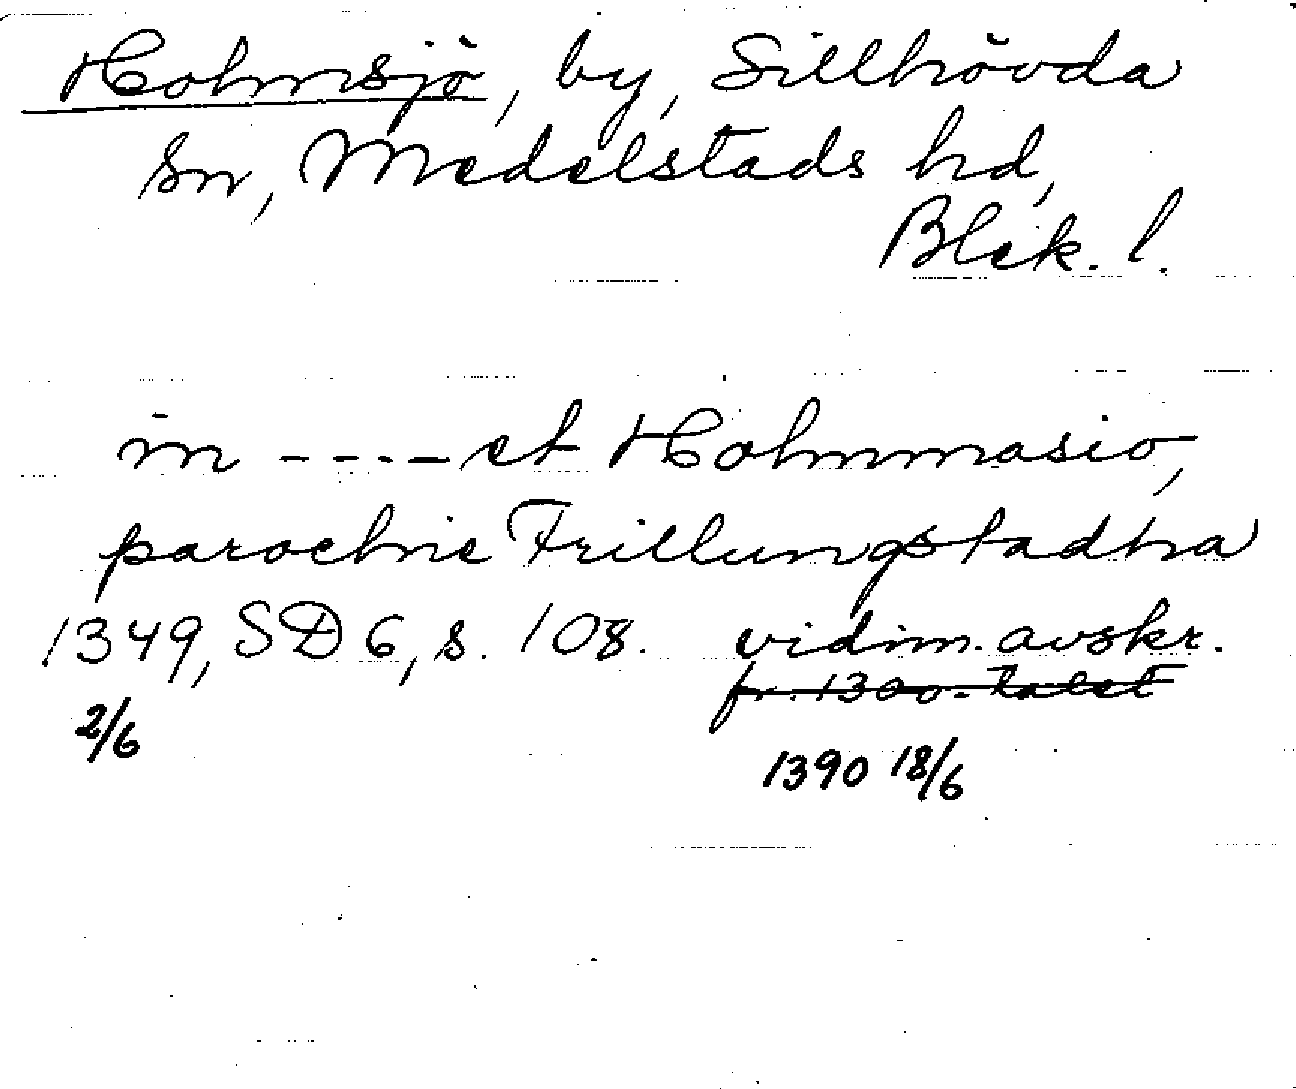 Holmsjö, by, Sillhövda
sn, Medelstads hd,
Blek. l.
in ---- et Holmmasio,
parochie Frillungstadha
1349, SD 6, s. 108. vidim. avskr.
fr. 1300-talet
2/6
1390 18/6